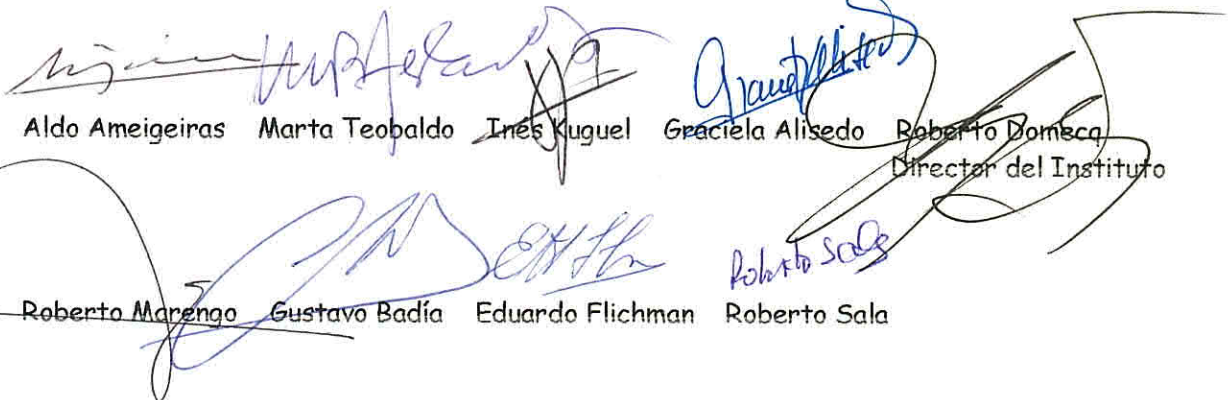 Aldo Ameigeiras Marta Teobaldo Inés Kuguel Graciela Alisedo Roberto Domecq
Director del Instituto
Roberto Sala
Roberto Marengo Gustavo Badía Eduardo Flichman Roberto Sala